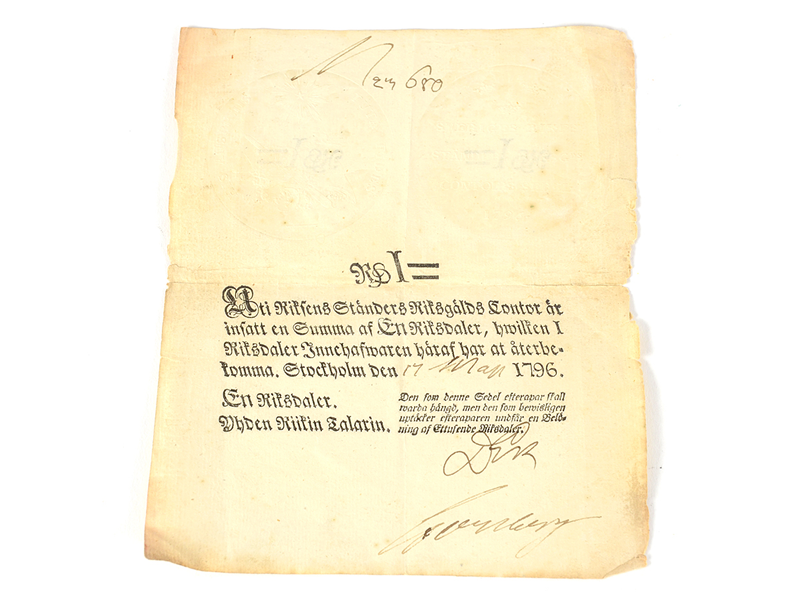 680
RD I=
Uti Riksens Ständers Riksgälds Contor är
insatt en Summa af En Riksdaler, hwilken I
Riksdaler Innehafwaren häraf har at återbe-
komma. Stockholm den 17 Maji 1796.
En Riksdaler.
Yhden Riikin Talarin.
Den som denne Sedel efterapar skall
warda hängd, men den som bewisligen
uptäcker efteraparen undfår en Belö-
ning af Ettusende Riksdaler.